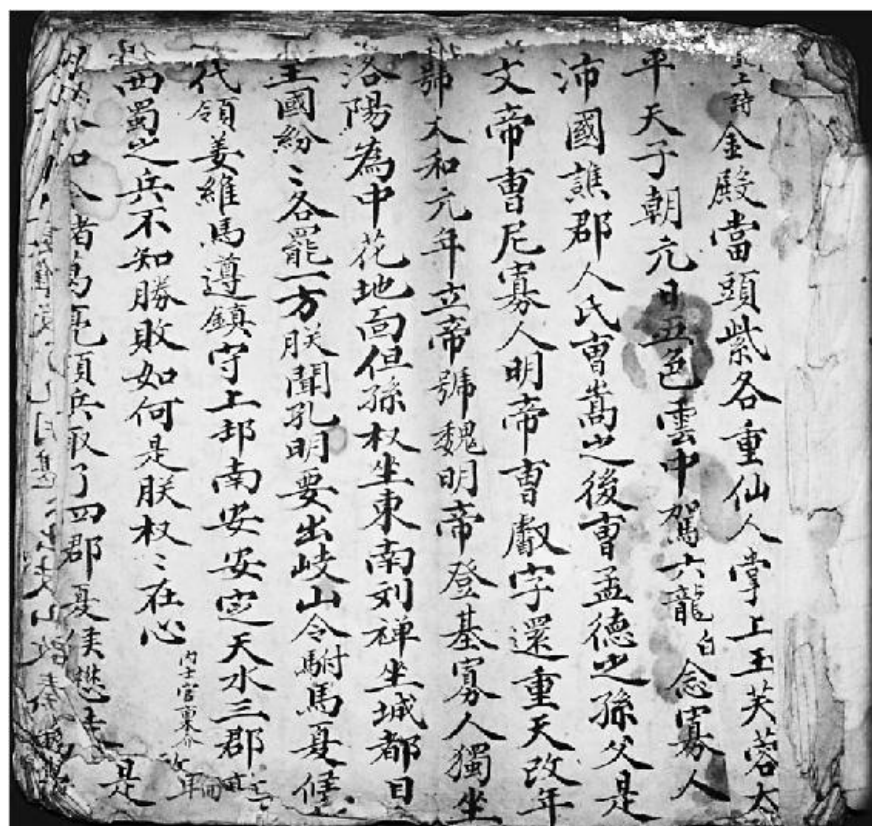 上詩金殿當頭紫各重仙人掌上玉芙蓉太
平天子朝元日五色雲中駕六龍 白 念寡人
沛國譙郡人氏曺嵩之後曺孟德之孫父是
文帝曺尼寡人明帝曺叡字還重天改年
號太和元年立帝號魏明帝登基寡人獨坐
洛陽為中花地面但孫权坐東南刘禅坐城都目
王國紛〻各罷一方朕聞孔明要出岐山令駙馬夏候
代領姜維馬遵鎮守上邽南安安定天水三郡
西蜀之兵不知勝敗如何是朕权〻在心 内士官稟介
諸葛亮領兵取了四郡夏侯懋 是
岐山